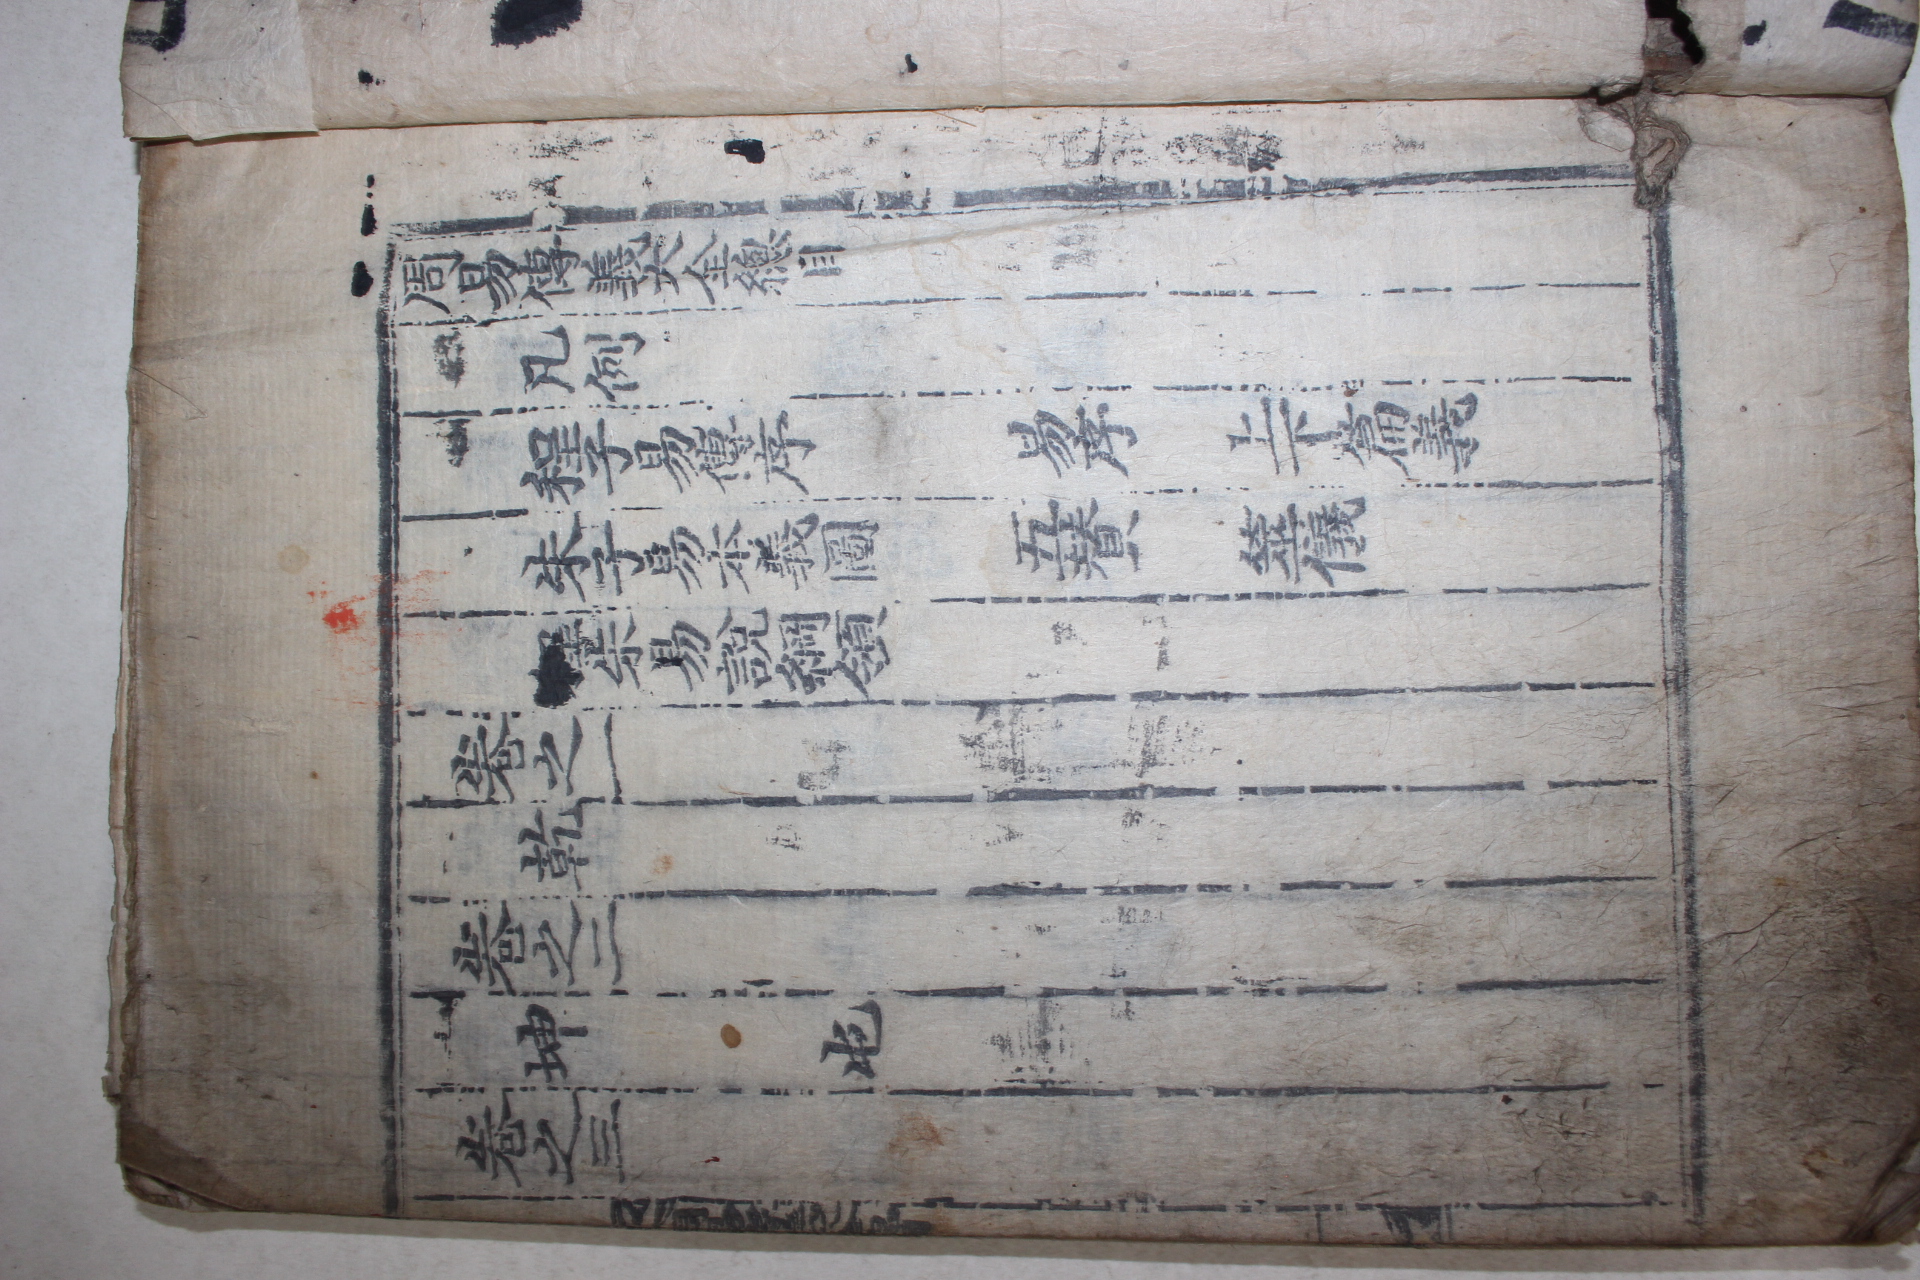 周易傳義大全總目
凡例
程子易傳序 易序 上下篇義
朱子易本義圖 五贊 筮儀
易說綱領
卷之一
乾
卷之二
坤 屯
卷之三